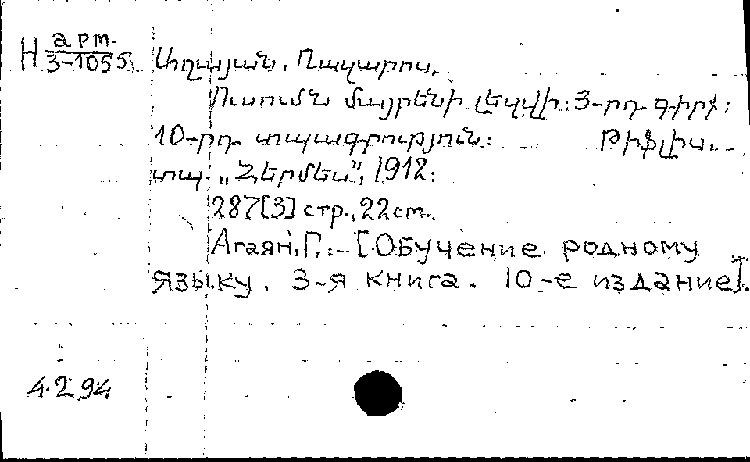 Н арт.
3-1055
Աղայան, Ղազարոս.
Ուսումն մայրենի լեզվի: 3-րդ գիրք:
10-րդ տպագրություն: Թիֆլիս.
տպ. „Հերմես“, 1912:
287[3] стр., 22 cm.
Агаян, Г. – [Обучение родному
языку. 3-я книга. 10-е издание].
4.2.94